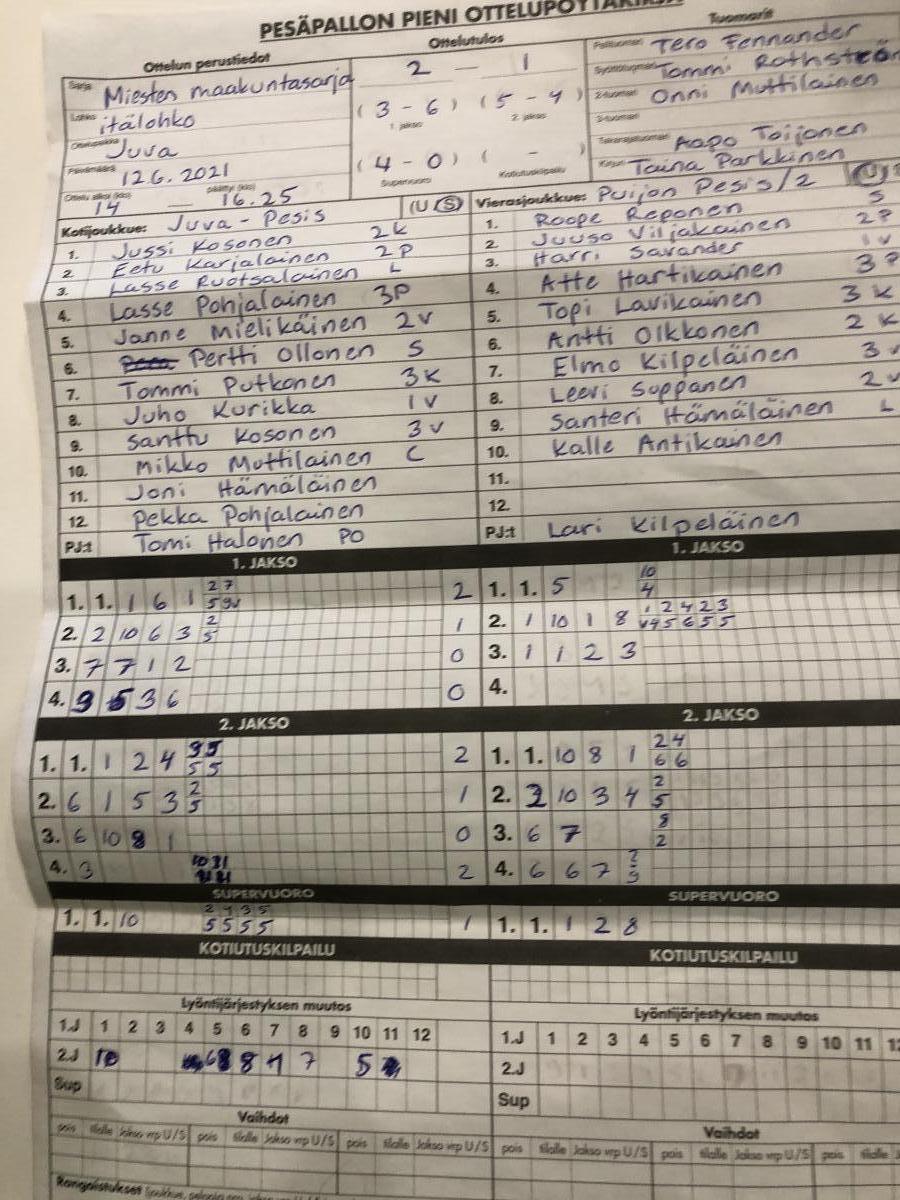 PESÄPALLON PIENI OTTELUPÖYTÄKIRJA
Ottelun perustiedot
Ottelutulos
Tuomarit
Sarja Miesten maakuntasarja
Lohko itälohko
Ottelupaikka Juva
Päivämäärä 12.6.2021
Ottelu alkoi (klo) 14 — päättyi (klo) 16.25
2 – 1
(3 – 6) (5 – 4)
1. jakso 2. jakso
(4 – 0) ( – )
Supervuoro Kotiutuskilpailu
Pelituomari Tero Fennander
Syöttötuomari Tommi Rothstén
2-tuomari Onni Muttilainen
3-tuomari
Takarajatuomari Aapo Toijonen
Kirjuri Taina Parkkinen
Kotijoukkue: Juva-Pesis (U/S)
1. Jussi Kosonen 2K
2. Eetu Karjalainen 2P
3. Lasse Ruotsalainen L
4. Lasse Pohjalainen 3P
5. Janne Mielikäinen 2V
6. Pertti Ollonen S
7. Tommi Putkonen 3K
8. Juho Kurikka 1V
9. Santtu Kosonen 3V
10. Mikko Muttilainen C
11. Joni Hämäläinen
12. Pekka Pohjalainen
PJ:t Tomi Halonen PO
Vierasjoukkue: Puijon Pesis/2
1. Roope Reponen S
2. Juuso Viljakainen 2P
3. Harri Savander 1V
4. Atte Hartikainen 3P
5. Topi Lavikainen 3K
6. Antti Olkkonen 2K
7. Elmo Kilpeläinen 3V
8. Leevi Soppanen 2V
9. Santeri Hämäläinen L
10. Kalle Antikainen
11.
12.
PJ:t Lari Kilpeläinen
1. JAKSO
1. 1. 1 6 1 2 7 2
5 9V
2. 2 10 6 3 2 1
5
3. 7 7 1 2 0
4. 9 5 3 6 0
1. JAKSO
1. 1. 5 10
4
2. 1 10 1 8 1 2 4 2 3
V4 5 6 5 5
3. 1 1 2 3
4.
2. JAKSO
1. 1. 1 2 4 9 5 2
5 5
2. 6 1 5 3 2 1
5
3. 6 10 8 1 0
4. 3 2
2. JAKSO
1. 1. 10 8 1 2 4
6 6
2. 2 10 3 4 2
5
3. 6 7 8
2
4. 6 6 7 2
9
SUPERVUORO
1. 1. 10 2 4 3 5 1
5 5 5 5
SUPERVUORO
1. 1. 1 2 8
KOTIUTUSKILPAILU
KOTIUTUSKILPAILU
Lyöntijärjestyksen muutos
1.J 1 2 3 4 5 6 7 8 9 10 11 12
2.J 10 8 7 5
Sup
Lyöntijärjestyksen muutos
1.J 1 2 3 4 5 6 7 8 9 10 11
2.J
Sup
Vaihdot
pois tilalle Jakso vrp U/S pois tilalle Jakso vrp U/S pois tilalle Jakso vrp U/S
Vaihdot
pois tilalle Jakso vrp U/S pois tilalle Jakso vrp U/S pois tilalle
Rangaistukset